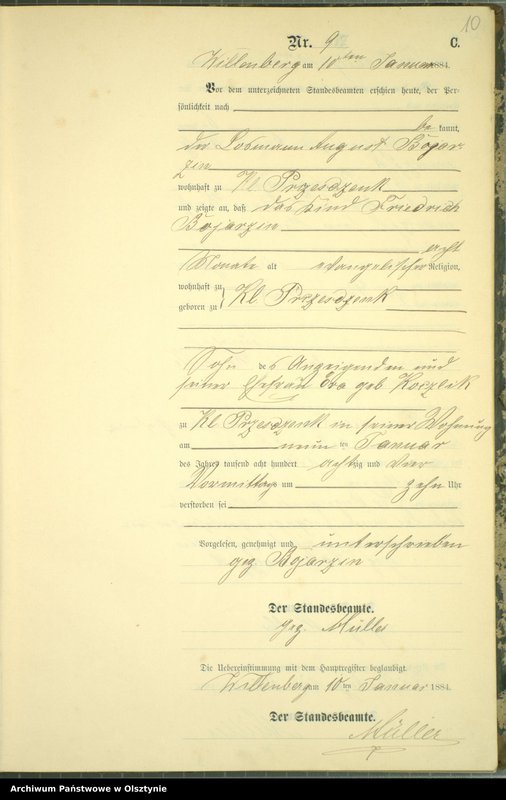 10
Nr. 9 C.
Willenberg am 10ten Januar 1884.
Vor dem unterzeichneten Standesbeamten erschien heute, der Per-
sönlichkeit nach
be kannt,
der Losmann August Bojar-
zin
wohnhaft zu Kl. Przesdzenk
und zeigte an, daß das Kind Friedrich
Bojarzin
acht
Monate alt evangelischer Religion,
wohnhaft zu
geboren zu Kl. Przesdzenk
Sohn des Anzeigenden und
seiner Ehefrau Eva geb Koczlik
zu Kl Przesdzenk in seiner Wohnung
am neun ten Januar
des Jahres tausend acht hundert achtzig und vier
Vormittags um zehn Uhr
verstorben sei
Vorgelesen, genehmigt und unterschrieben
gez Bojarzin
Der Standesbeamte.
gez. Müller
Die Uebereinstimmung mit dem Hauptregister beglaubigt
Willenberg am 10ten Januar 1884.
Der Standesbeamte.
Müller
Archiwum Państwowe w Olsztynie